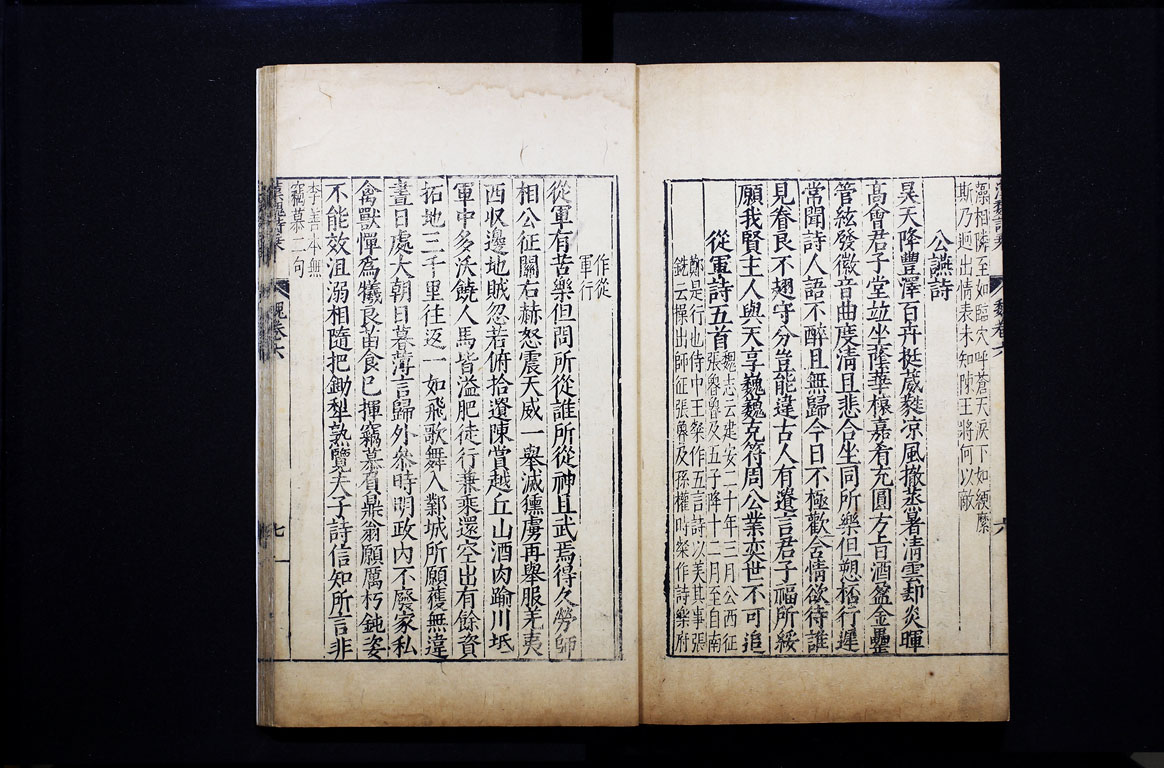 藻相隣至如臨穴呼蒼天淚下如綆縻
斯乃迥出情表未知陳王將何以敵
公讌詩
昊天降豐澤百卉挺葳蕤涼風撤蒸暑清雲却炎暉
高會君子堂並坐蔭華榱嘉肴充圓方旨酒盈金罍
管絃發徽音曲度清且悲合坐同所樂但愬杯行遲
常聞詩人語不醉且無歸今日不極歡含情欲待誰
見眷良不翅守分豈能違古人有遺言君子福所綏
願我賢主人與天享巍巍克符周公業奕世不可追
從軍詩五首
魏志云建安二十年三月公西征
張魯魯及五子降十二月至自南
鄭是行也侍中王粲作五言詩以美其事張
銑云操出師征張魯及孫權時粲作詩樂府
作從
軍行
從軍有苦樂但問所從誰所從神且武焉得久勞師
相公征關右赫怒震天威一舉滅獯虜再舉服羌夷
西収邊地賊忽若俯拾遺陳賞越丘山酒肉踰川坻
軍中多沃饒人馬皆溢肥徒行兼乘還空出有餘資
拓地三千里往返一如飛歌舞入鄴城所願獲無違
晝日處大朝日暮薄言歸外參時明政內不廢家私
禽獸憚爲犧良苗食已揮竊慕負鼎翁願厲朽鈍姿
不能效沮溺相隨把鋤犁熟覽夫子詩信知所言非
李善本無
竊慕二句
魏卷六
七